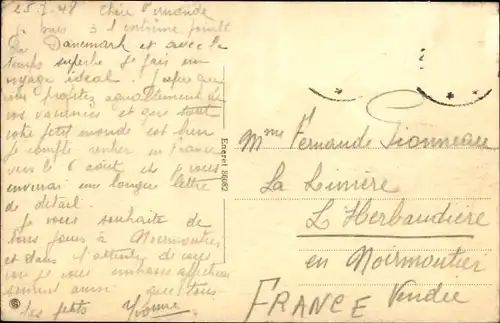 25-7-48 Chère Fernande
Je suis à l'extrême pointe
du Danemark et avec le
temps superbe je fais un
voyage idéal. J'espère que
vous profitez actuellement de
vos vacances et que tout
votre petit monde est bien
Je compte rentrer en France
vers le 6 août et je vous
enverai une longue lettre
de détail.
Je vous souhaite de
bons jours à Noirmoutier
et dans l'attente de vous
voir je vous embrasse affectueu
sement ainsi que tous
les petits Yvonne
Eneret 86082
Mme Fernande Pionneau
La Linière
L'Herbaudière
en Noirmoutier
FRANCE Vendée